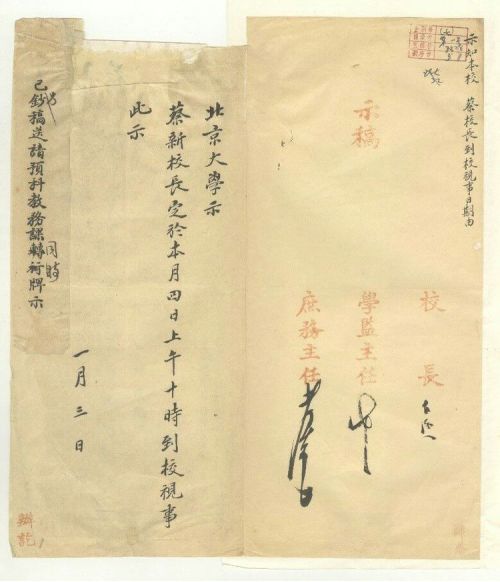 示知本校　蔡校長到校視事日期由
示稿
校長
學監主任
庶務主任
北京大學示
蔡新校長定於本月四日上午十時到校視事
此示
一月三日
已鈔稿送請預科教務課轉行牌示
同時
辦訖